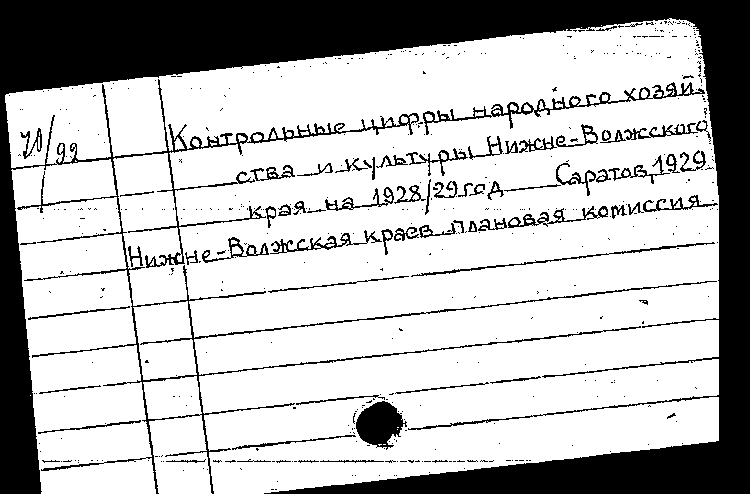 Контрольные цифры народного хозяй-
ства и культуры Нижне-Волжского
края на 1928/29 год Саратов, 1929
Нижне-Волжская краев. плановая комиссия